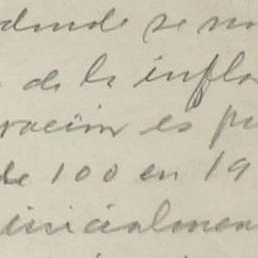 donde se no
de la infla
ración es pu
de 100 en 19
inicialmen